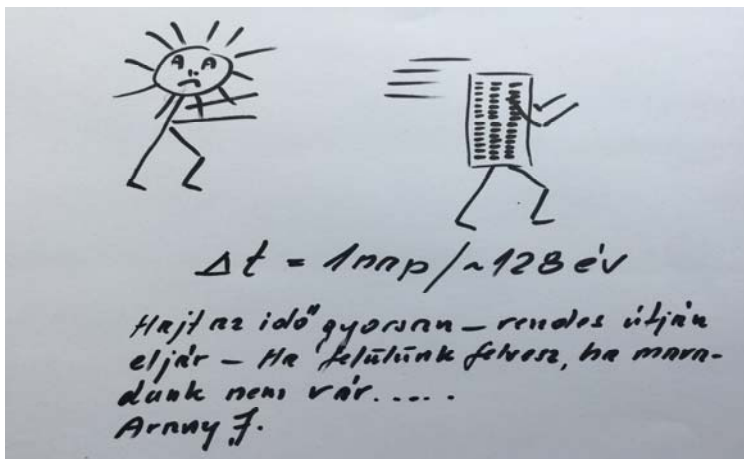 Δt = 1nap/~128 év
Hajt az idő gyorsan – rendes útján
eljár – Ha felülünk felvesz, ha mara-
dunk nem vár.....
Arany J.